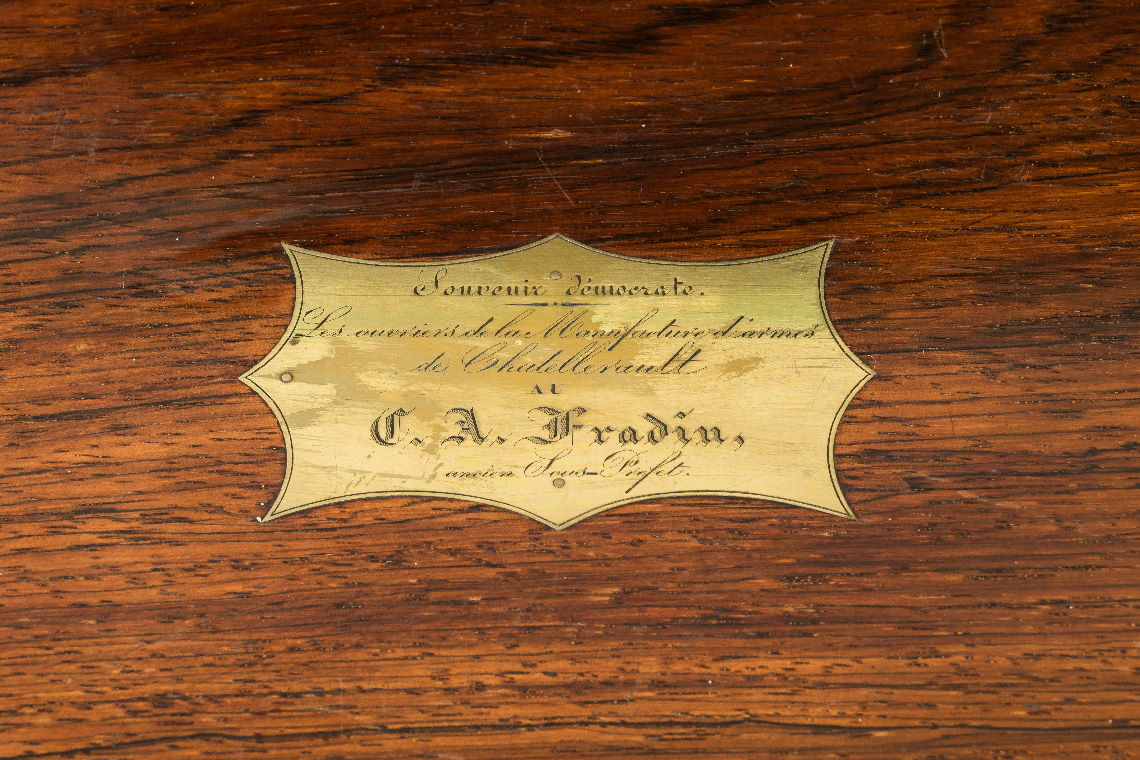 Souvenir démocrate.
Les ouvriers de la Manufacture d'armes
de Chatellerault
AU
C. A. Fradin,
ancien Sous-Préfet.